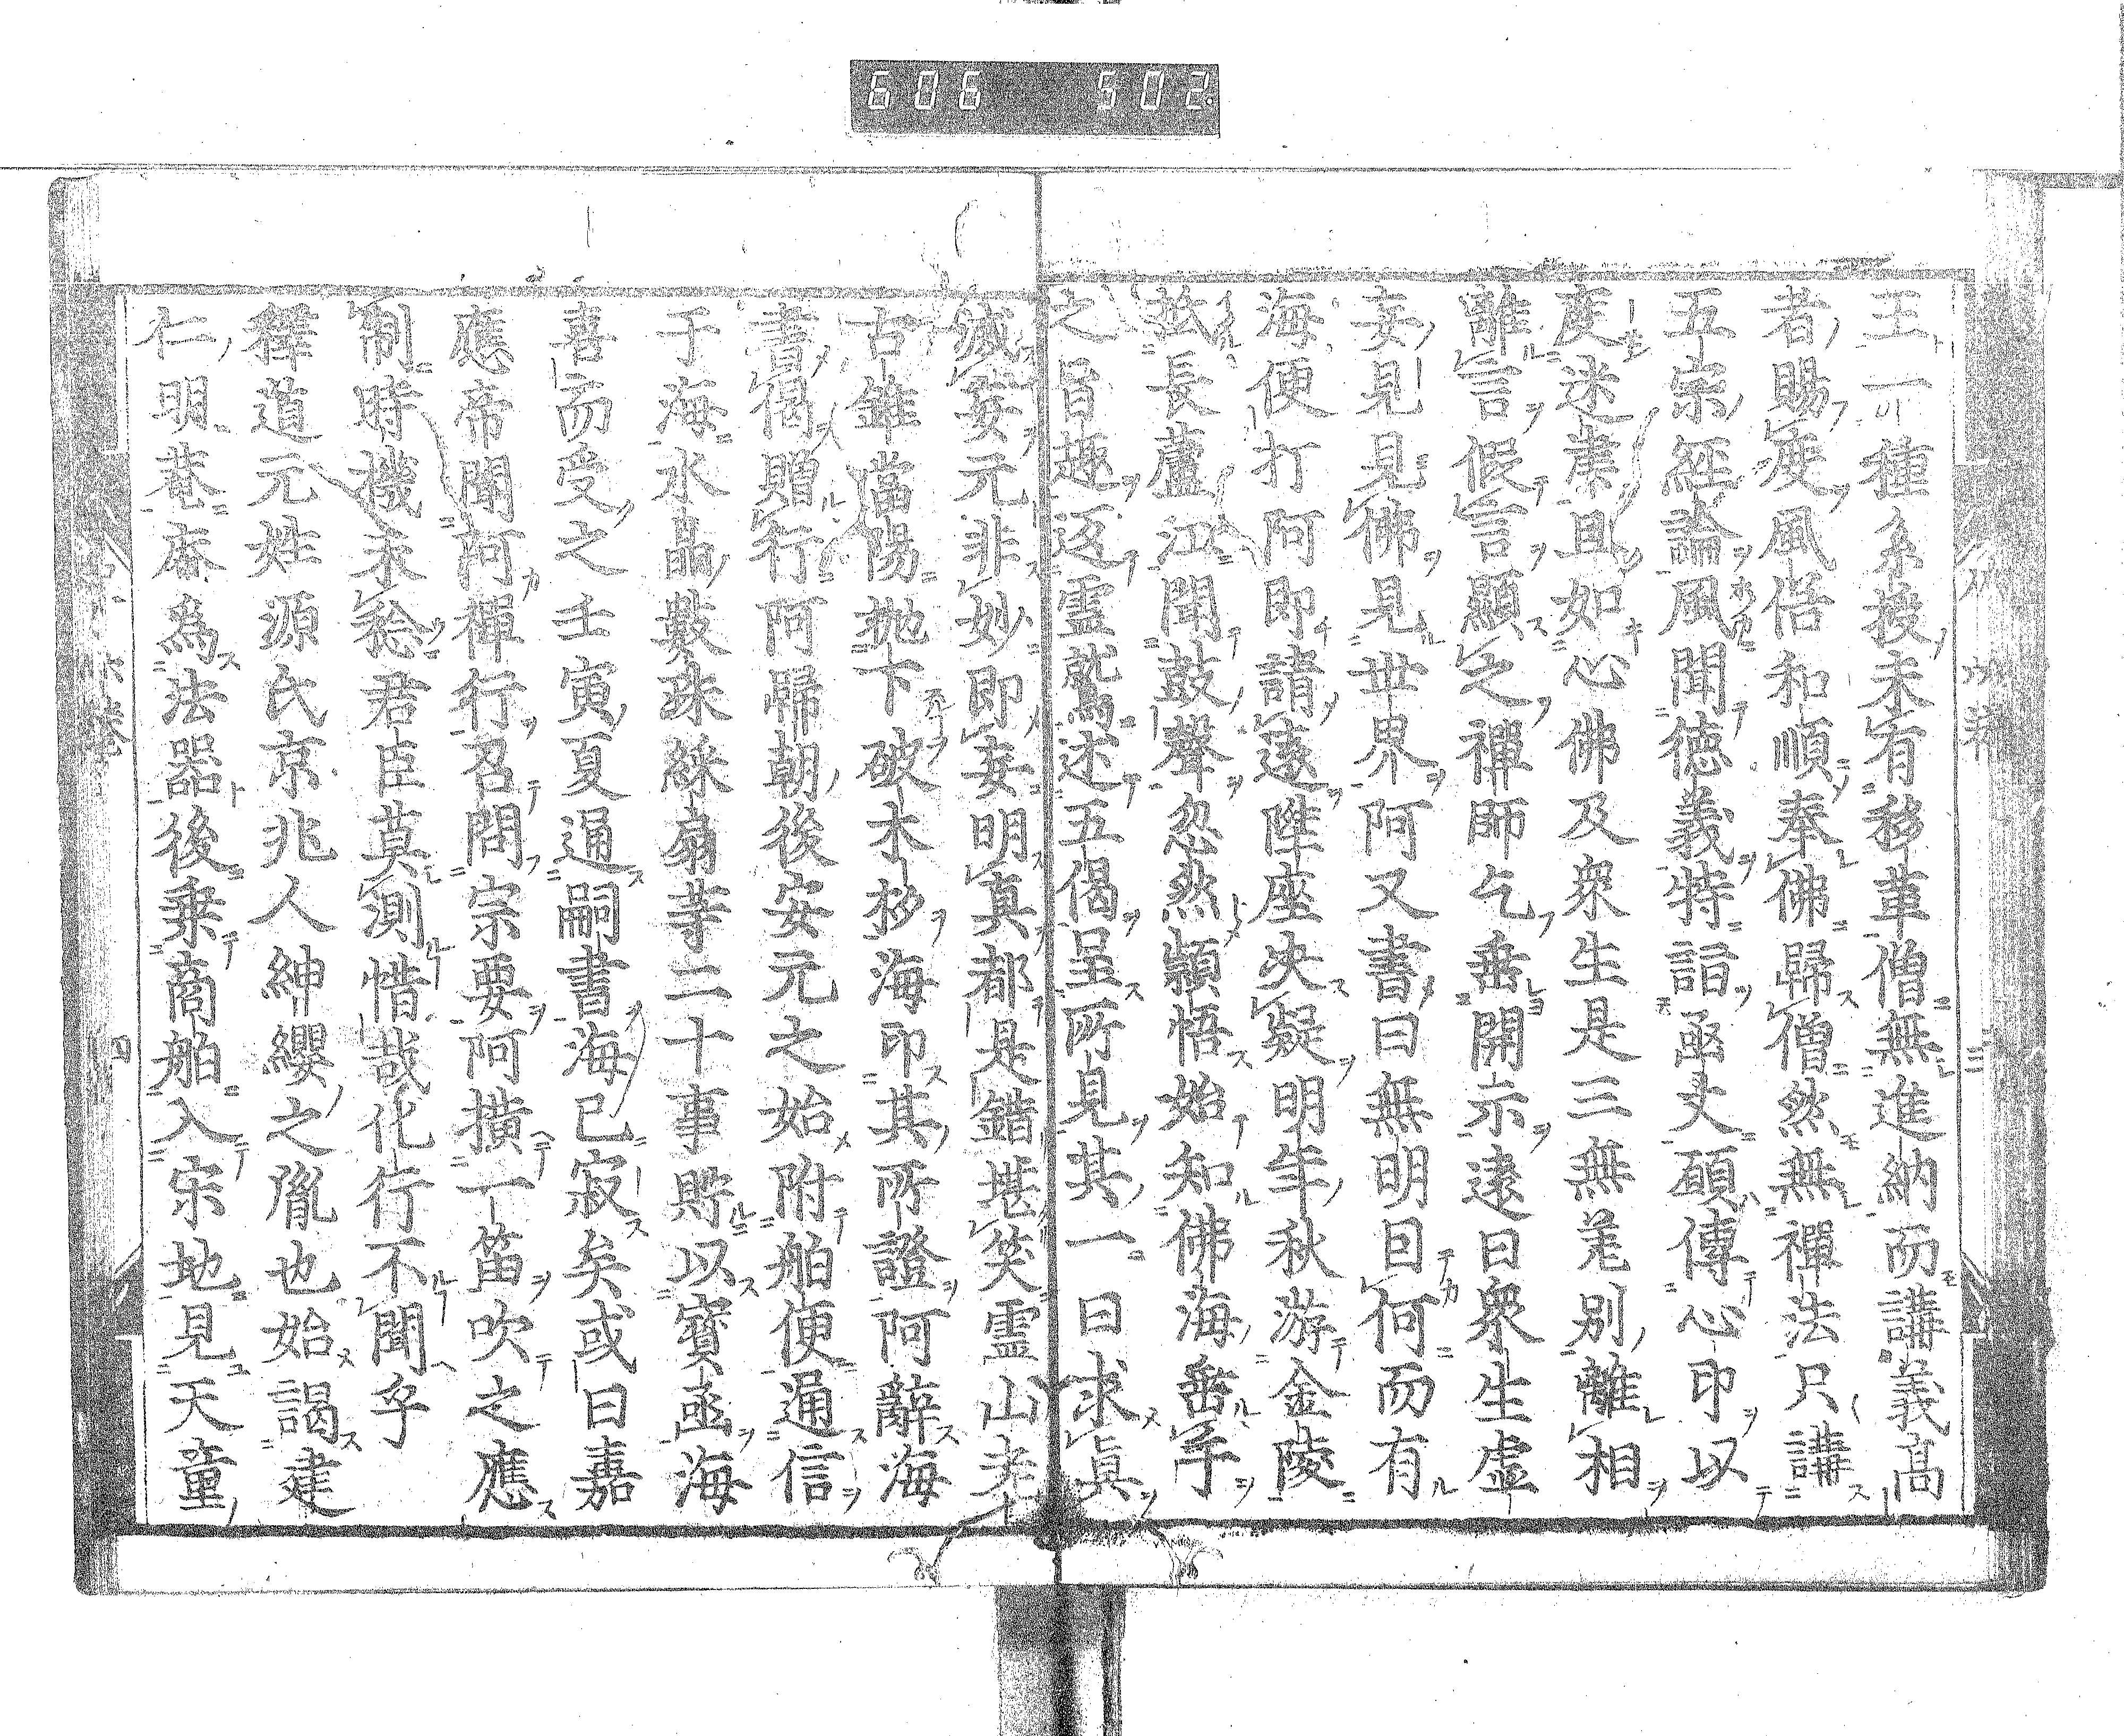 606 502
王一種系授未有移革僧無進納而講義高
者賜度風俗和順奉佛歸僧然無禪法只講
五宗經論風聞德義特詣函丈願傳心印以
度迷衆且如心佛及衆生是三無差別離相
離言假言顯之禪師乞垂開示遠曰衆生虚
妄見見佛見世界阿又書曰無明因何而有
海便打阿即請遠陞座決疑明年秋游金陵
抵長蘆江聞鼓聲忽然頴悟始知佛海垂手
之旨趣返霊鷲述五偈呈所見其一曰求眞
滅妄元非妙即妄明真都是錯堪笑霊山老
古錐當陽抛下破木杓海印其所證阿辭海
書偈贈行阿歸朝後安元之始附舶便通信
于海水晶數珠綵扇等二十事貯以寶函海
喜而受之壬寅夏通嗣書海已寂矣或曰嘉
應帝聞阿禪行召問宗要阿横一笛吹之應
制時機未稔君臣莫測惜哉化行不聞乎
釋道元姓源氏京兆人紳纓之胤也始謁建
仁明菴菴爲法器後乗商舶入宋地見天童